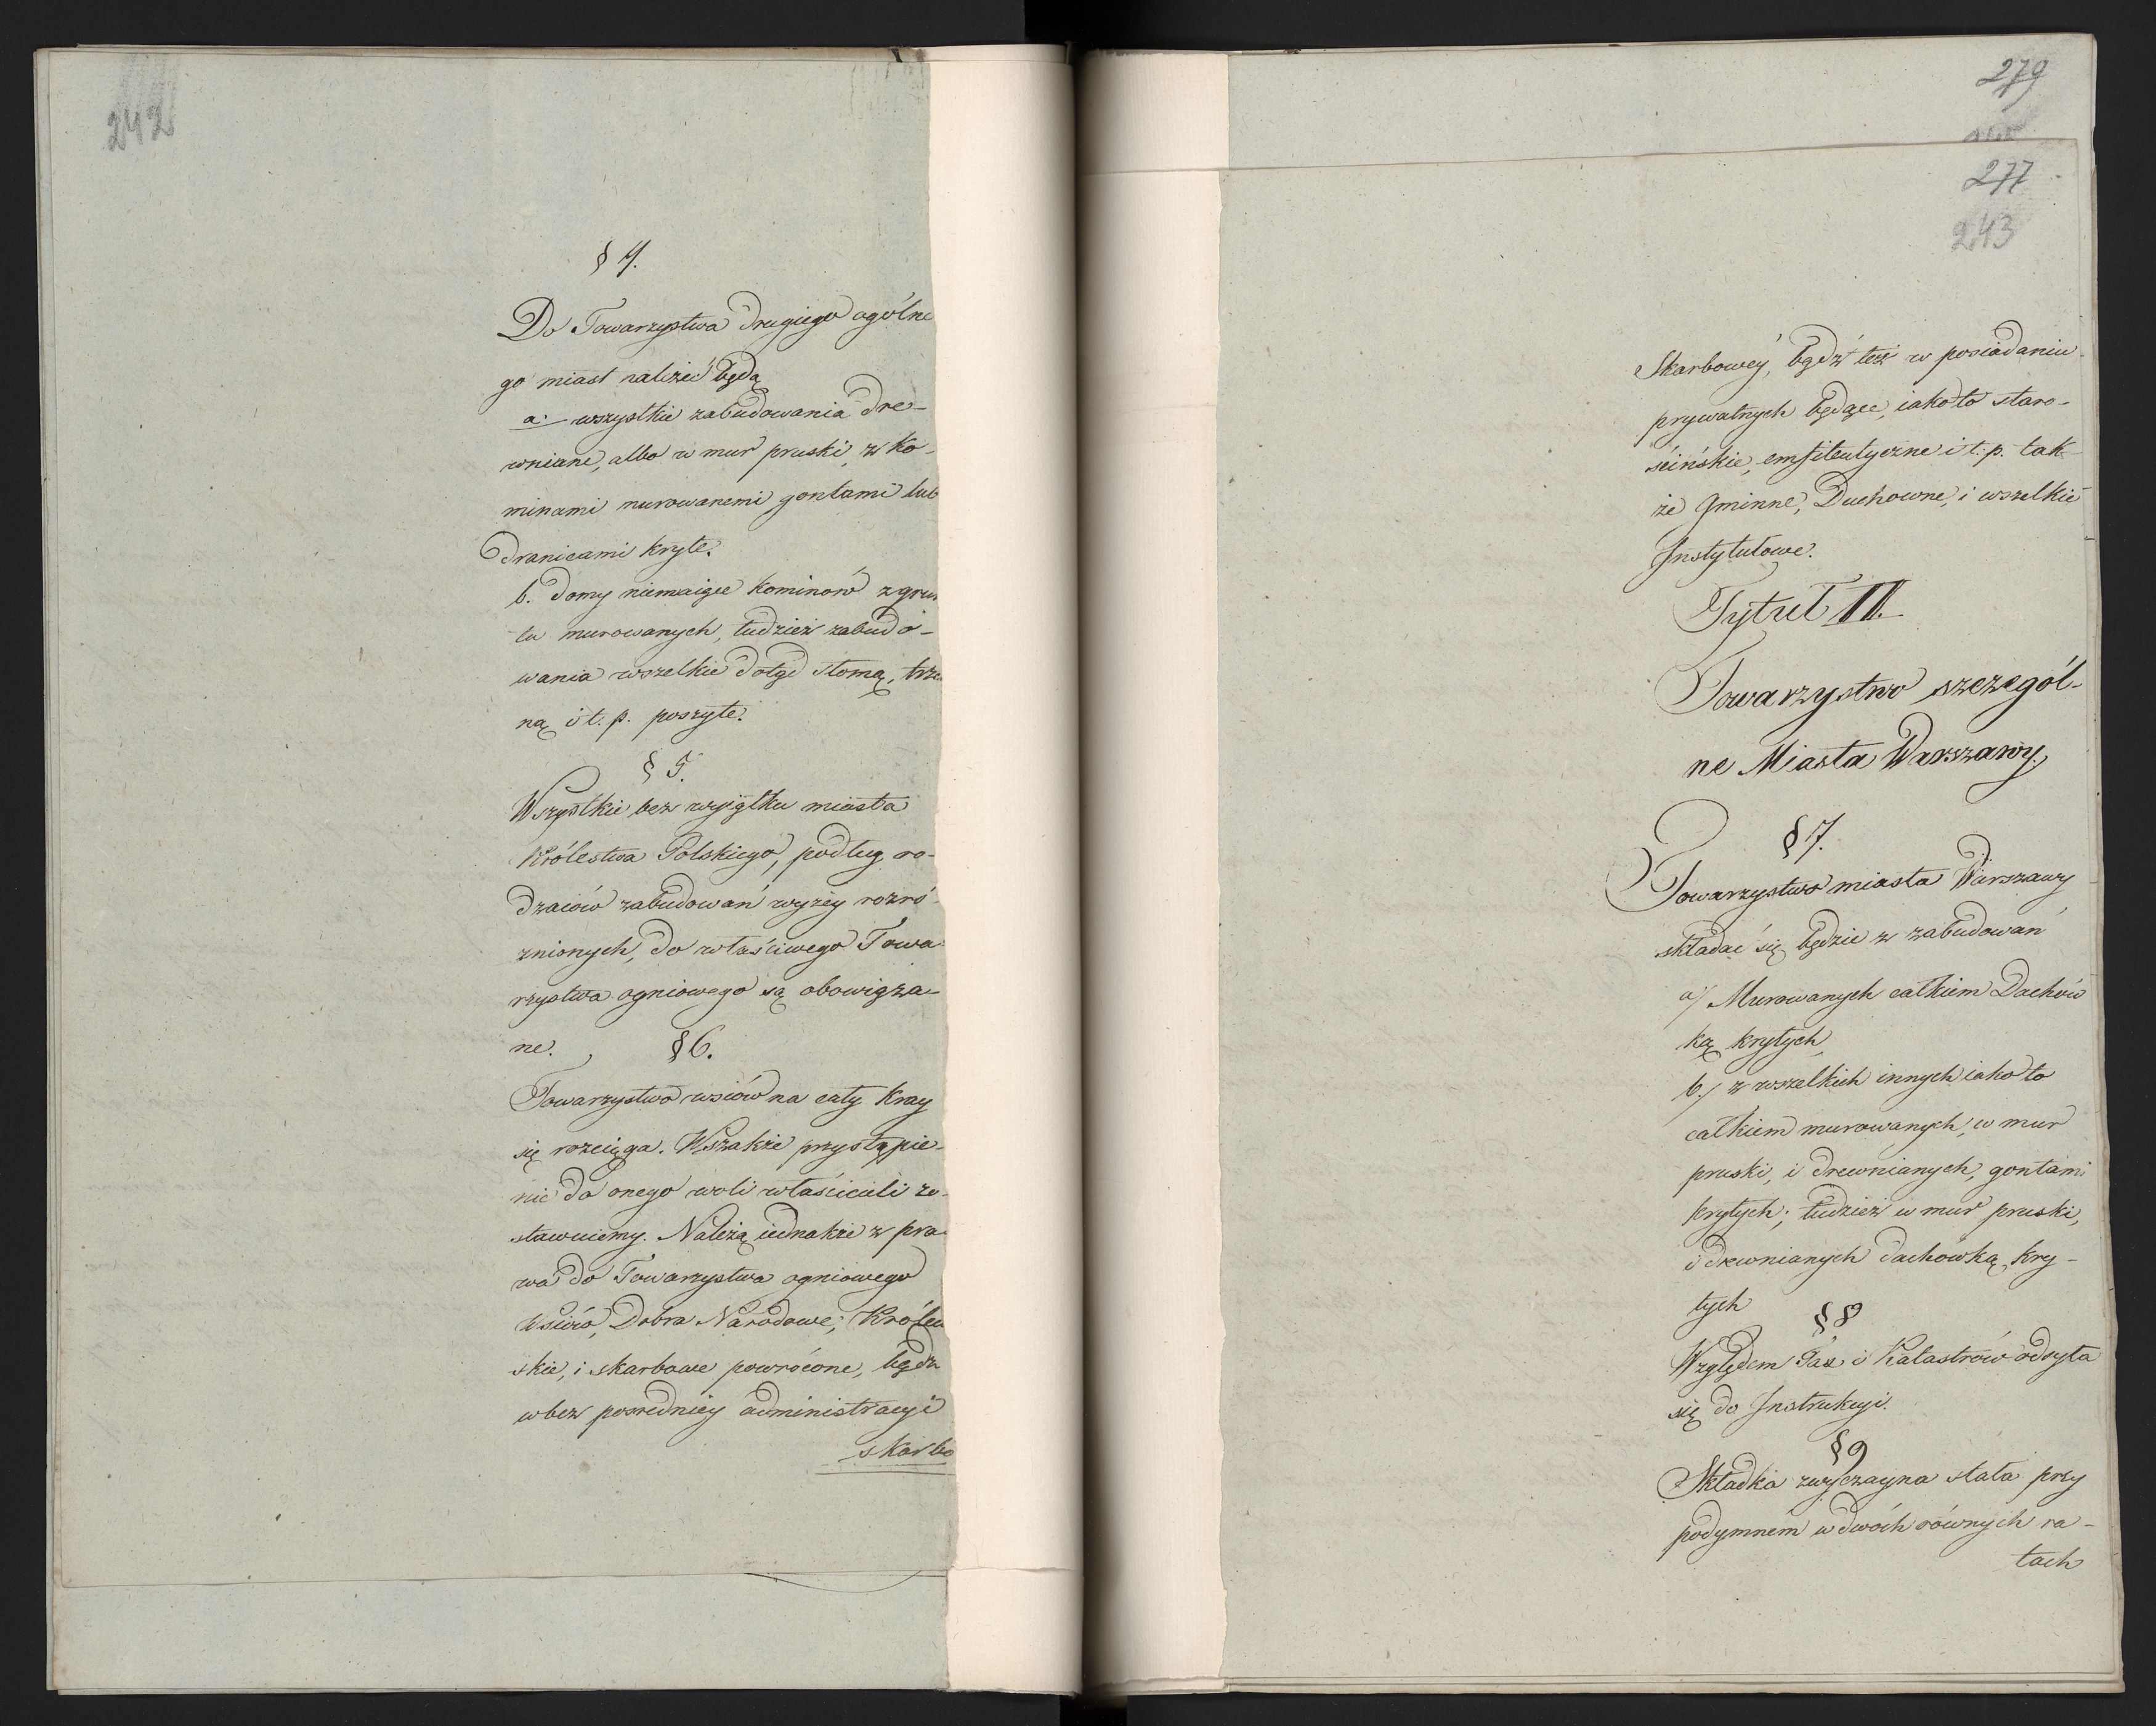 242
§ 4.
Do Towarzystwa drugiego ogólne
go miast należeć będą
a. wszystkie zabudowania dre-
wniane, albo w mur pruski, z ko-
minami murowanemi gontami lub
dranicami kryte.
b. domy niemaiące kominów z grun
tu murowanych, tudzież zabudo-
wania wszelkie dotąd słomą, trzci
ną i t. p. poszyte.
§ 5.
Wszystkie bez wyiątku miasta
Królestwa Polskiego, podług ro-
dzaiów zabudowań wyżey rozró-
żnionych, do właściwego Towa-
rzystwa ogniowego są obowiąza-
ne.
§ 6.
Towarzystwo wsiów na cały Kray
się rozciąga. Wszakże przystąpie-
nie do onego woli właścicieli zo-
stawuiemy. Należą iednakże z pra-
wa do Towarzystwa ogniowego
Wsiów, Dobra Narodowe, Królew
skie, i skarbowe powrócone, bądź
w bez posredniéy administracyi
skarbo
279
277
243
Skarbowéy, bądź też w posiadaniu
prywatnych będące, iako to staro-
ścińskie, emfiteutyczne i t: p. tak-
że Gminne, Duchowne, i wszelkie
Instytutowe.
Tytuł II.
Towarzystwo szczegól-
ne Miasta Warszawy.
§ 7.
Towarzystwo miasta Warszawy
składać się będzie z zabudowań
a/ Murowanych całkiem Dachów
ką krytych,
b./ z wszelkich innych iako to
całkiem murowanych, w mur
pruski, i drewnianych, gontami
krytych; tudzież w mur pruski,
i drewnianych dachówką kry-
tych
§ 8
Względem Tax i Katastrów odsyła
się do Instrukcyi.
§ 9
Składka zwyczayna stała przy
podymném w dwóch równych ra-
tach